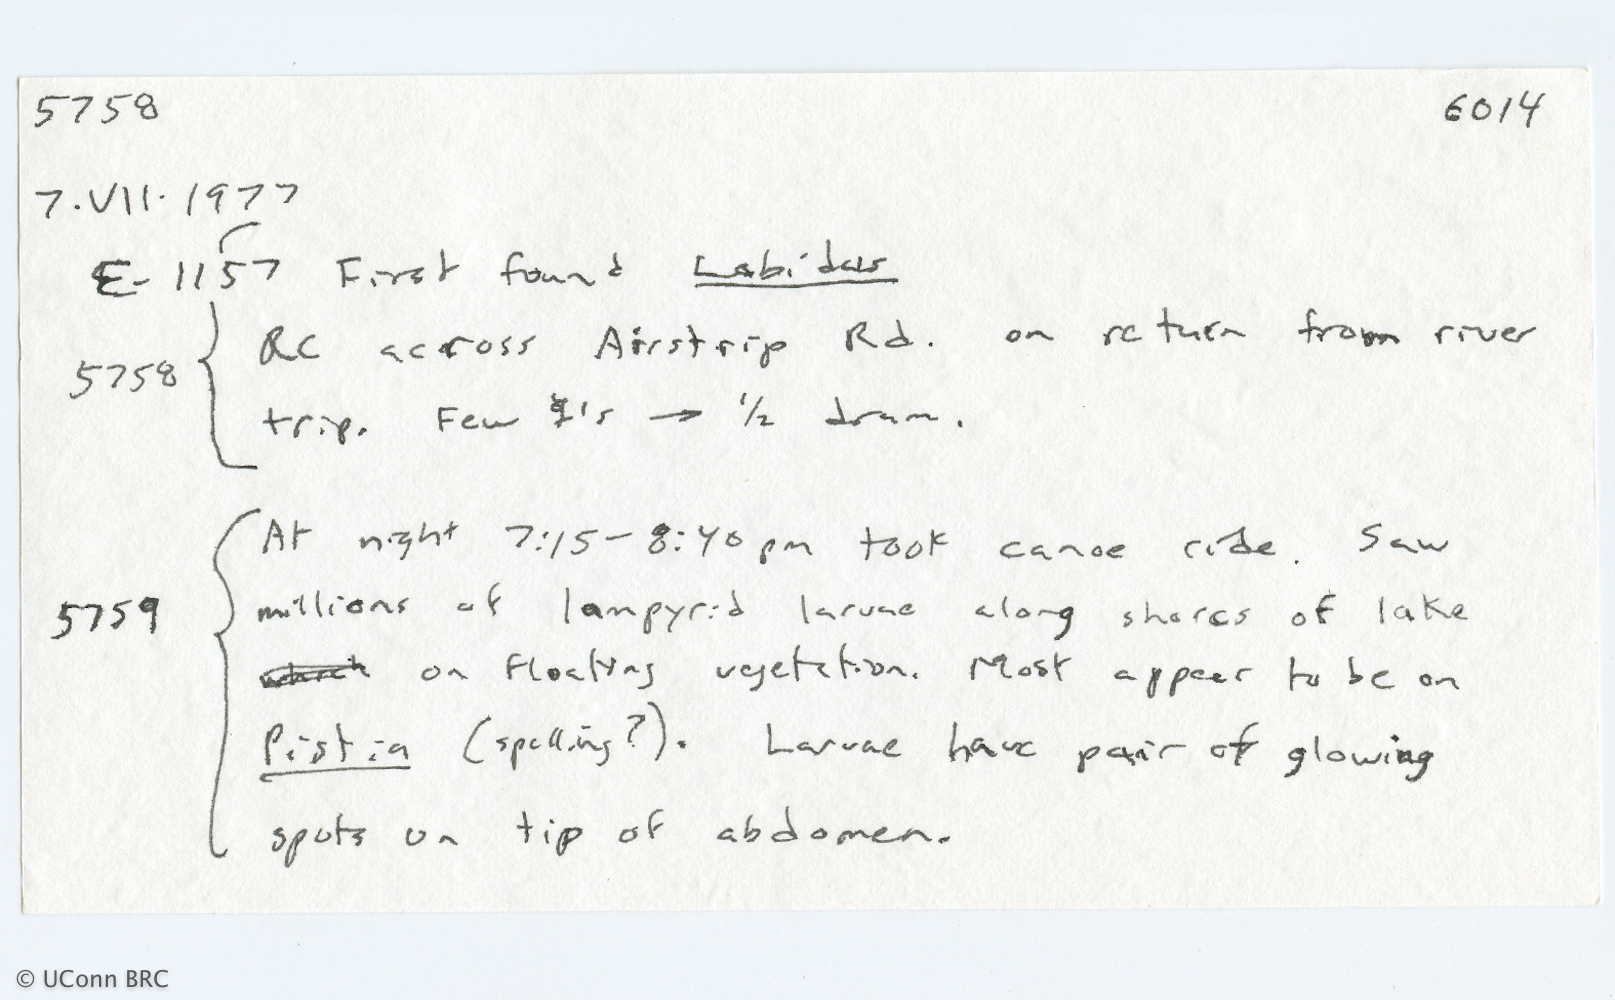 5758 6014
7.VII.1977
E-1157 First found Labidus
5758 RC across Airstrip Rd. on return from river
trip. Few → 1/2 dram.
At night 7:15-8:40 pm took canoe ride. Saw
5759 millions of lampyrid larvae along shores of lake
on floating vegetation. Most appear to be on
Pistia (spelling?). Larvae have pair of glowing
spots on tip of abdomen.
© UConn BRC